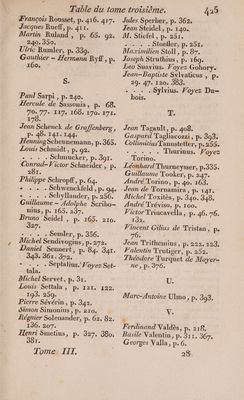 Table du tome troisième. 425
François Rousset, p. 416. 417.
Jacques Rueff, p. 411.
Martin Ruland, p. 65. 92.
240. 350.
Ulric Rumler, p. 339.
Gauthier - Hermann Ryff, p.
160.
S.
Paul Sarpi, p. 240.
Hercule de Sassonia, p. 68.
70. 77. 117. 168. 170. 171.
178.
Jean Schenck de Graffenberg,
p. 48. 141. 144.
Henning Scheunemann, p. 365.
Louis Schmidt, p. 92.
. . . . Schmucker, p. 391.
Conrad-Victor Schneider, p.
281.
Philippe Schropff, p. 64.
. . . . Schwenckfeld, p. 94.
. . . . Schyllander, p. 256.
Guillaume - Adolphe Scribo-
nius, p. 165. 257.
Bruno Seidel, p. 165. 210.
327.
. . . . Semler, p. 356.
Michel Sendivogius, p. 272.
Daniel Sennert, p. 84. 341.
343. 361. 372.
. . . . Septalius. Voyez Set-
tala.
Louis Settala, p. 121. 122.
193. 259.
Pierre Sévérin, p. 342.
Simon Simonius, p. 210.
Régnier Solenander, p. 62. 82.
136. 207.
Henri Smetius, p. 327. 380.
381.
Tome III.
Jules Sperber, p. 362.
Jean Steidel, p. 140.
M. Stiefel, p. 251.
. . . . Stoefler, p. 251.
Maximilien Stoll, p. 87.
Joseph Struthius, p. 169.
Leo Suavius. Voyez Gohory.
Jean-Baptiste Sylvaticus, p.
29. 47. 120. 383.
. . . . Sylvius. Voyez Du-
bois.
T.
Jean Tagault, p. 408.
Gaspard Tagliacozzi, p. 393.
Collinitius Tannstetter, p. 255.
. . . . Thurinus. Voyez
Torino.
Léonhard Thurneysser, p. 335.
Guillaume Tooker, p. 247.
André Torino, p. 40. 163.
Jean de Tornamira, p. 141.
Michel Toxitès, p. 340. 348.
André Tréviso, p. 100.
Victor Trincavella, p. 46. 76.
132.
Vincent Cilius de Tristan, p.
76.
Jean Trithemius, p. 222. 223.
Valentin Trutiger, p. 252.
Théodore Turquet de Mayer-
ne, p. 376.
U.
Marc-Antoine Ulmo, p. 393.
V.
Ferdinand Valdès, p. 218.
Basile Valentin, p. 311. 367.
Georges Valla, p. 6.
28